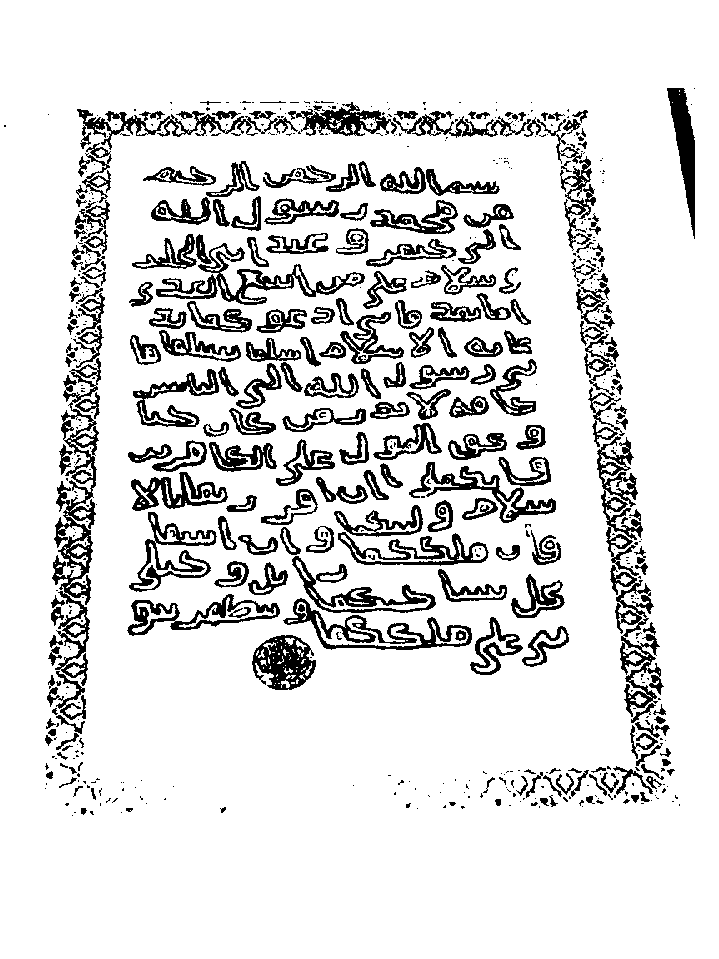 بسم الله الرحمن الرحيم
من محمد رسول الله
الى جيفر و عبد ابني الجلند
ى سلام على من اتبع الهدى
اما بعد فاني ادعوكما بد
عاية الاسلام اسلما تسلما فا
ني رسول الله الى الناس
كافة لانذر من كان حيا
و يحق القول على الكافرين
فانكما ان اقررتما بالا
سلام وليتكما و ان ابيتما
فان ملككما زايل و خيلي
تحل بساحتكما و تظهر نبو
تي على ملككما